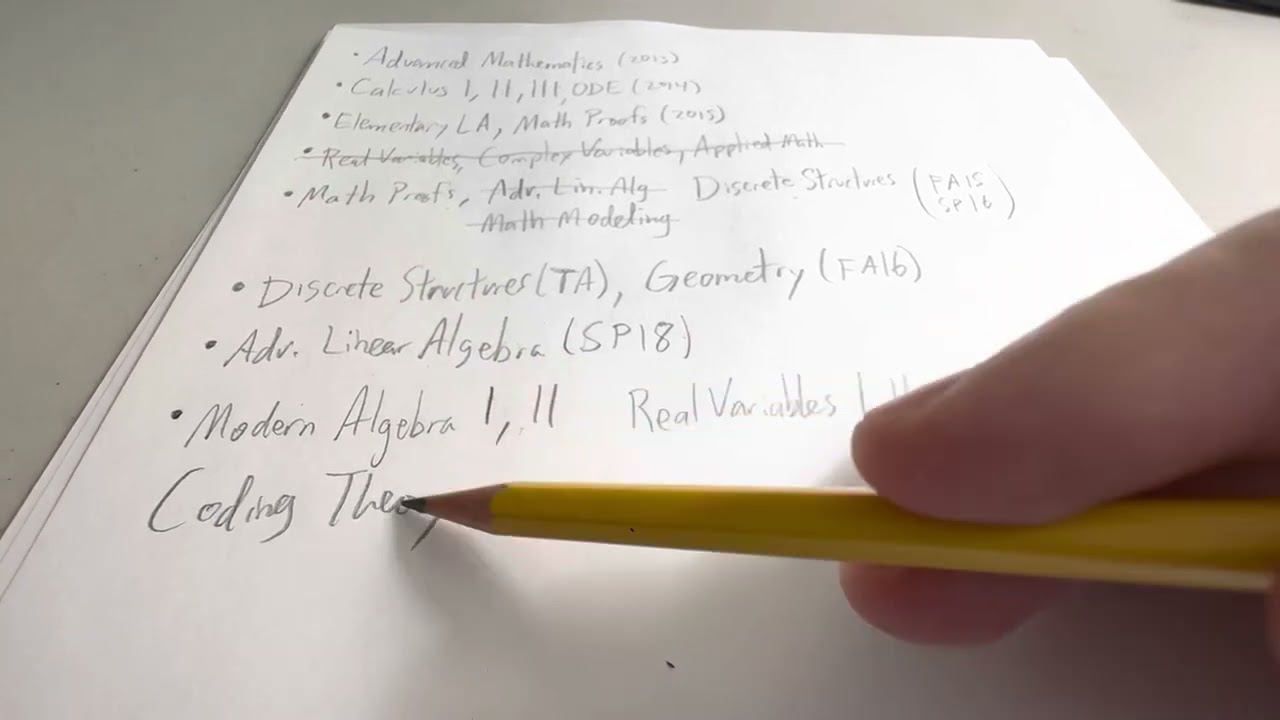 • Advanced Mathematics (2013)
• Calculus I, II, III, ODE (2014)
• Elementary LA, Math Proofs (2015)
• Real Variables, Complex Variables, Applied Math
• Math Proofs, Adv. Lin. Alg Discrete Structures (FA15
SP16)
Math Modeling
• Discrete Structures (TA), Geometry (FA16)
• Adv. Linear Algebra (SP18)
• Modern Algebra I, II Real Variables I, II
Coding Theory